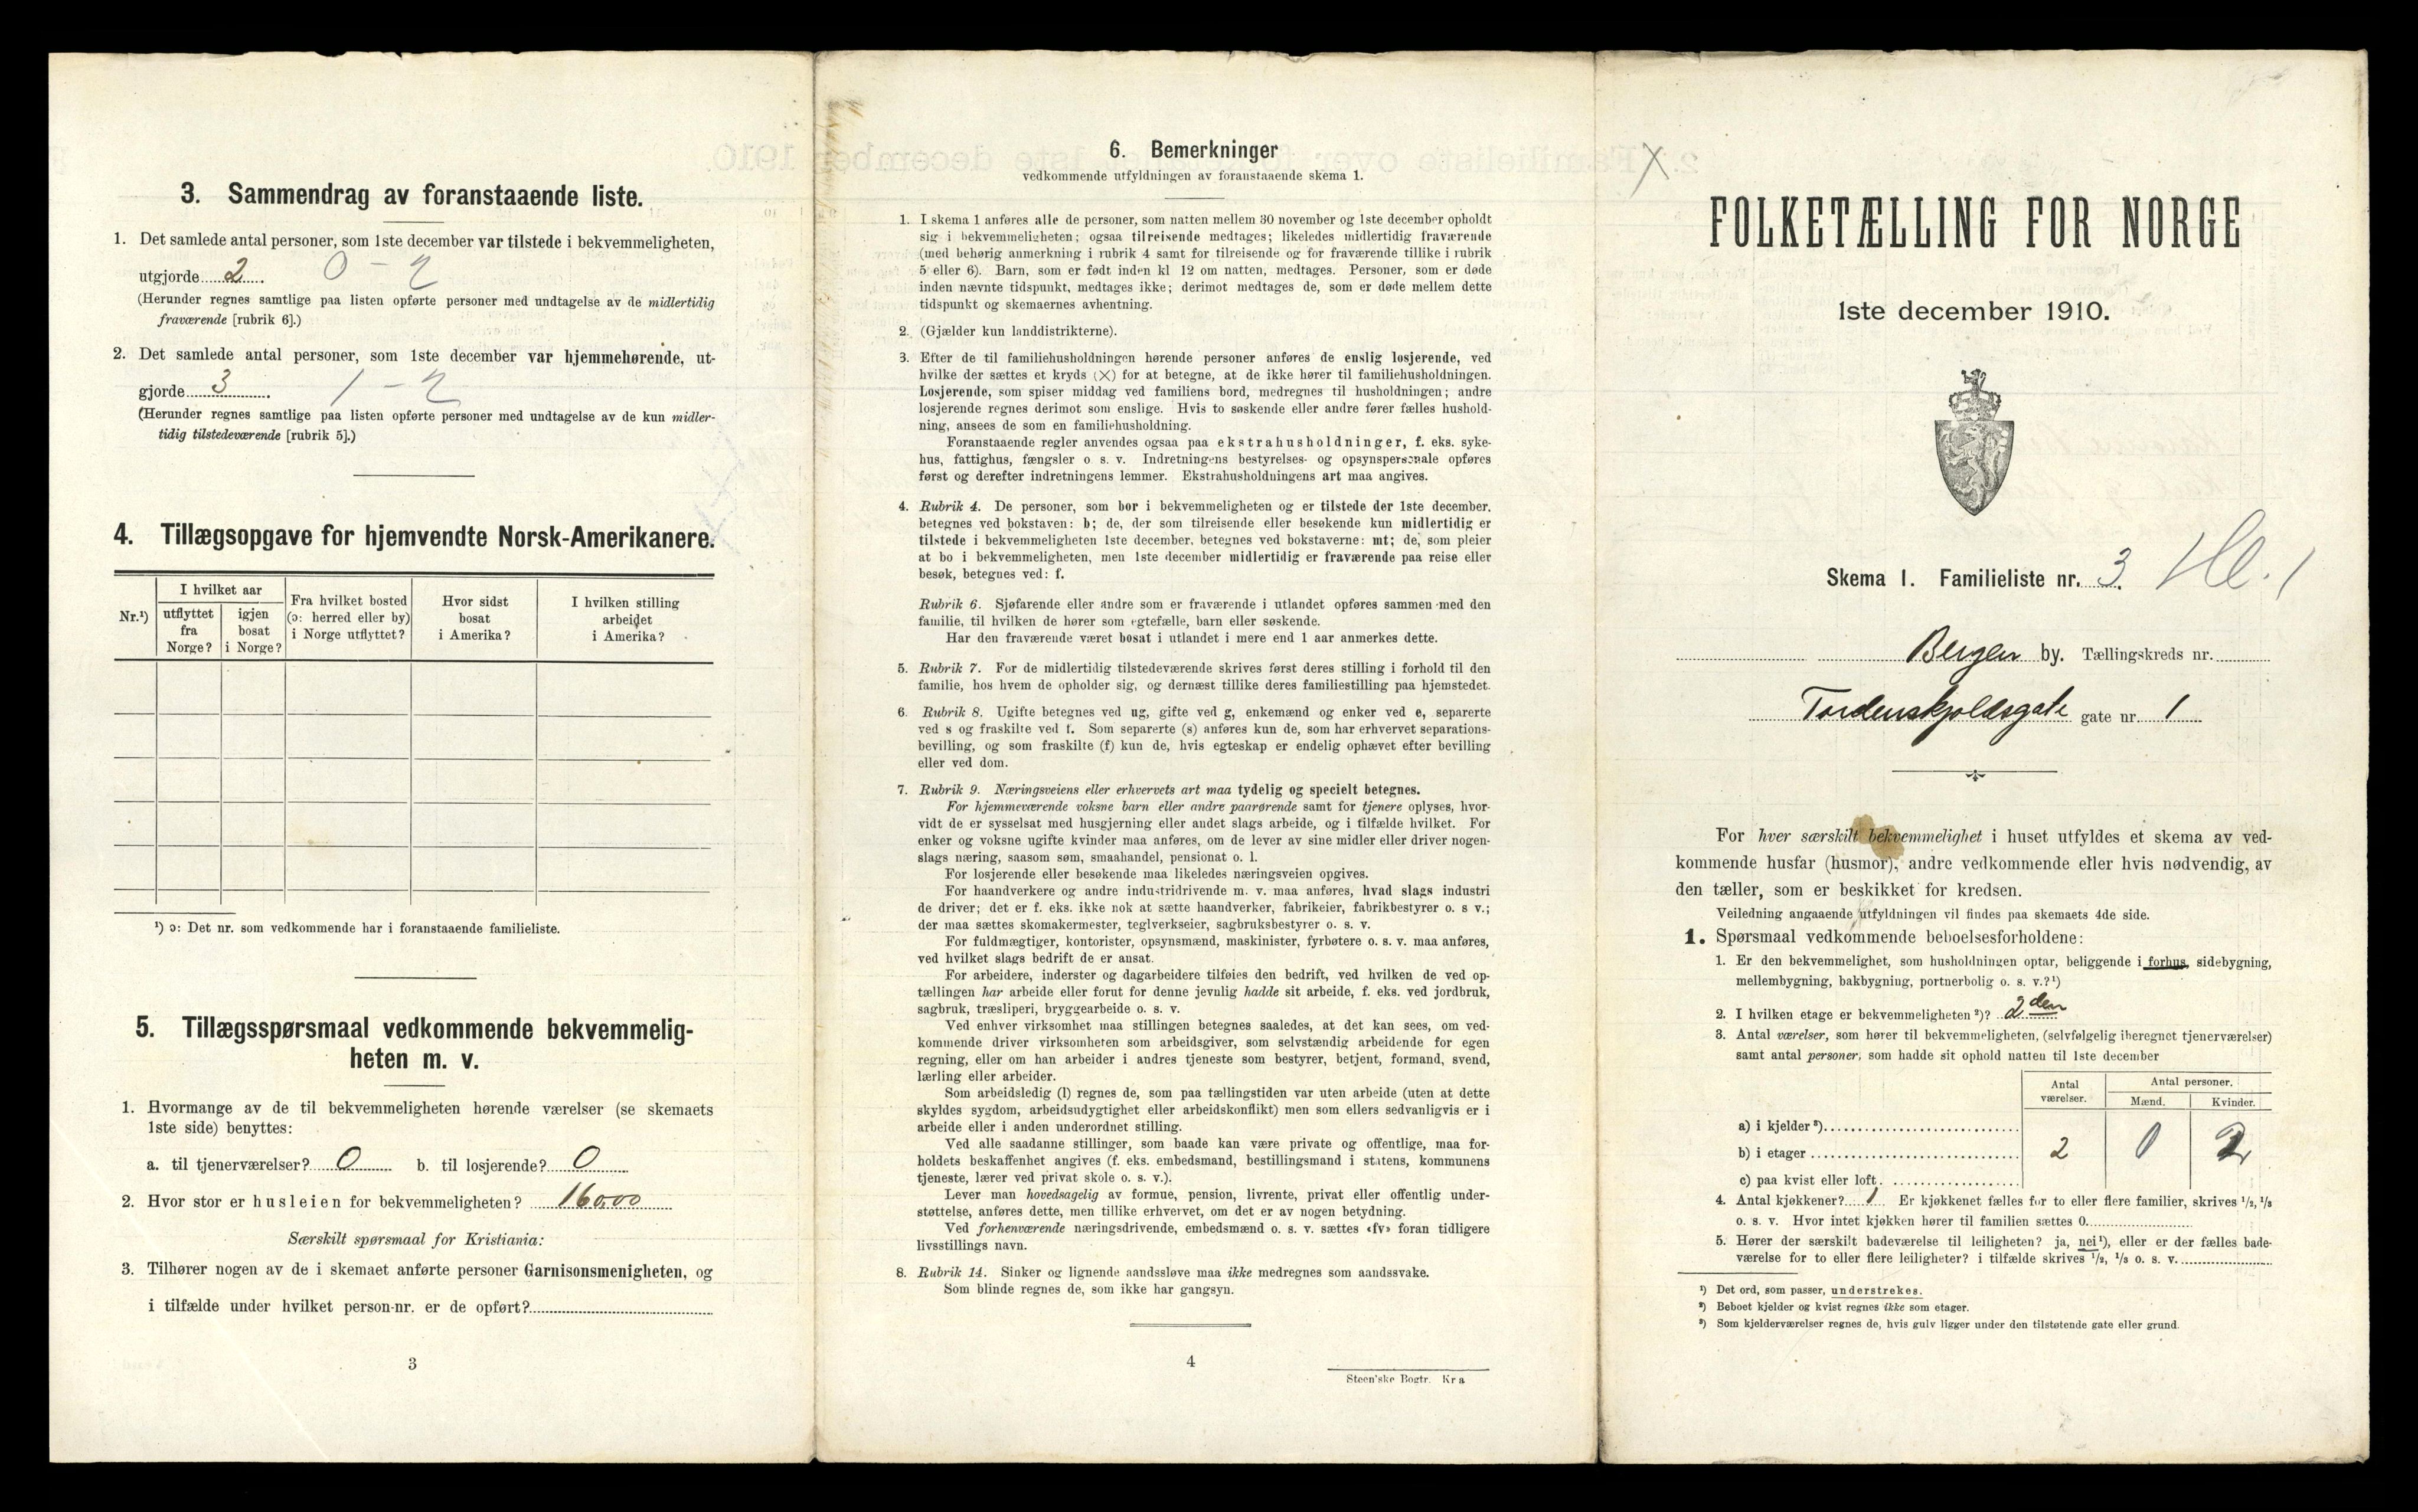 3. Sammendrag av foranstaaende liste.
1. Det samlede antal personer, som 1ste december var tilstede i bekvemmeligheten,
utgjorde 2. 0 - 2
(Herunder regnes samtlige paa listen opførte personer med undtagelse av de midlertidig
fraværende [rubrik 6].)
2. Det samlede antal personer, som 1ste december var hjemmehørende, ut-
gjorde 3. 1 - 2
(Herunder regnes samtlige paa listen opførte personer med undtagelse av de kun midler-
tidig tilstedeværende [rubrik 5].)
4. Tillægsopgave for hjemvendte Norsk-Amerikanere.
Nr.¹)
I hvilket aar
utflyttet
fra
Norge?
igjen
bosat
i Norge?
Fra hvilket bosted
(ɔ: herred eller by)
i Norge utflyttet?
Hvor sidst
bosat
i Amerika?
I hvilken stilling
arbeidet
i Amerika?
¹) ɔ: Det nr. som vedkommende har i foranstaaende familieliste.
5. Tillægsspørsmaal vedkommende bekvemmelig-
heten m. v.
1. Hvormange av de til bekvemmeligheten hørende værelser (se skemaets
1ste side) benyttes:
a. til tjenerværelser? 0 b. til losjerende? 0
2. Hvor stor er husleien for bekvemmeligheten? 160,00
Særskilt spørsmaal for Kristiania:
3. Tilhører nogen av de i skemaet anførte personer Garnisonsmenigheten, og
i tilfælde under hvilket person-nr. er de opført?
3
6. Bemerkninger
vedkommende utfyldningen av foranstaaende skema 1.
1. I skema 1 anføres alle de personer, som natten mellem 30 november og 1ste december opholdt
sig i bekvemmeligheten; ogsaa tilreisende medtages; likeledes midlertidig fraværende
(med behørig anmerkning i rubrik 4 samt for tilreisende og for fraværende tillike i rubrik
5 eller 6). Barn, som er født inden kl 12 om natten, medtages. Personer, som er døde
inden nævnte tidspunkt, medtages ikke; derimot medtages de, som er døde mellem dette
tidspunkt og skemaernes avhentning.
2. (Gjælder kun landdistrikterne).
3. Efter de til familiehusholdningen hørende personer anføres de enslig losjerende, ved
hvilke der sættes et kryds (×) for at betegne, at de ikke hører til familiehusholdningen.
Losjerende, som spiser middag ved familiens bord, medregnes til husholdningen; andre
losjerende regnes derimot som enslige. Hvis to søskende eller andre fører fælles hushold-
ning, ansees de som en familiehusholdning.
Foranstaaende regler anvendes ogsaa paa ekstrahusholdninger, f. eks. syke-
hus, fattighus, fængsler o s. v. Indretningens bestyrelses- og opsynspersonale opføres
først og derefter indretningens lemmer. Ekstrahusholdningens art maa angives.
4. Rubrik 4. De personer, som bor i bekvemmeligheten og er tilstede der 1ste december,
betegnes ved bokstaven: b; de, der som tilreisende eller besøkende kun midlertidig er
tilstede i bekvemmeligheten 1ste december, betegnes ved bokstaverne: mt; de, som pleier
at bo i bekvemmeligheten, men 1ste december midlertidig er fraværende paa reise eller
besøk, betegnes ved: f.
Rubrik 6. Sjøfarende eller andre som er fraværende i utlandet opføres sammen med den
familie, til hvilken de hører som egtefælle, barn eller søskende.
Har den fraværende været bosat i utlandet i mere end 1 aar anmerkes dette.
5. Rubrik 7. For de midlertidig tilstedeværende skrives først deres stilling i forhold til den
familie, hos hvem de opholder sig, og dernæst tillike deres familiestilling paa hjemstedet.
6. Rubrik 8. Ugifte betegnes ved ug, gifte ved g, enkemænd og enker ved e, separerte
ved s og fraskilte ved f. Som separerte (s) anføres kun de, som har erhvervet separations-
bevilling, og som fraskilte (f) kun de, hvis egteskap er endelig ophævet efter bevilling
eller ved dom.
7. Rubrik 9. Næringsveiens eller erhvervets art maa tydelig og specielt betegnes.
For hjemmeværende voksne barn eller andre paarørende samt for tjenere oplyses, hvor-
vidt de er sysselsat med husgjerning eller andet slags arbeide, og i tilfælde hvilket. For
enker og voksne ugifte kvinder maa anføres, om de lever av sine midler eller driver nogen-
slags næring, saasom søm, smaahandel, pensionat o. l.
For losjerende eller besøkende maa likeledes næringsveien opgives.
For haandverkere og andre industridrivende m. v. maa anføres, hvad slags industri
de driver; det er f. eks. ikke nok at sætte haandverker, fabrikeier, fabrikbestyrer o. s v.;
der maa sættes skomakermester, teglverkseier, sagbruksbestyrer o. s. v.
For fuldmægtiger, kontorister, opsynsmænd, maskinister, fyrbøtere o. s. v. maa anføres,
ved hvilket slags bedrift de er ansat.
For arbeidere, inderster og dagarbeidere tilføies den bedrift, ved hvilken de ved op-
tællingen har arbeide eller forut for denne jevnlig hadde sit arbeide, f. eks. ved jordbruk,
sagbruk, træsliperi, bryggearbeide o. s. v.
Ved enhver virksomhet maa stillingen betegnes saaledes, at det kan sees, om ved-
kommende driver virksomheten som arbeidsgiver, som selvstændig arbeidende for egen
regning, eller om han arbeider i andres tjeneste som bestyrer, betjent, formand, svend,
lærling eller arbeider.
Som arbeidsledig (l) regnes de, som paa tællingstiden var uten arbeide (uten at dette
skyldes sygdom, arbeidsudygtighet eller arbeidskonflikt) men som ellers sedvanligvis er i
arbeide eller i anden underordnet stilling.
Ved alle saadanne stillinger, som baade kan være private og offentlige, maa for-
holdets beskaffenhet angives (f. eks. embedsmand, bestillingsmand i statens, kommunens
tjeneste, lærer ved privat skole o. s. v.).
Lever man hovedsagelig av formue, pension, livrente, privat eller offentlig under-
støttelse, anføres dette, men tillike erhvervet, om det er av nogen betydning.
Ved forhenværende næringsdrivende, embedsmænd o. s. v. sættes «fv» foran tidligere
livsstillings navn.
8. Rubrik 14. Sinker og lignende aandssløve maa ikke medregnes som aandssvake.
Som blinde regnes de, som ikke har gangsyn.
4
Steen'ske Bogtr. Kr a
FOLKETÆLLING FOR NORGE
1ste december 1910.
Skema 1. Familieliste nr. 3.
Bergen by. Tællingskreds nr.
Tordenskjoldsgate gate nr. 1
For hver særskilt bekvemmelighet i huset utfyldes et skema av ved-
kommende husfar (husmor), andre vedkommende eller hvis nødvendig, av
den tæller, som er beskikket for kredsen.
Veiledning angaaende utfyldningen vil findes paa skemaets 4de side.
1. Spørsmaal vedkommende beboelsesforholdene:
1. Er den bekvemmelighet, som husholdningen optar, beliggende i forhus, sidebygning,
mellembygning, bakbygning, portnerbolig o. s. v.?¹)
2. I hvilken etage er bekvemmeligheten²)? 2den
3. Antal værelser, som hører til bekvemmeligheten, (selvfølgelig iberegnet tjenerværelser)
samt antal personer, som hadde sit ophold natten til 1ste december
Antal
værelser.
Antal personer.
Mænd. Kvinder.
a) i kjelder³)
b) i etager 2 0 2
c) paa kvist eller loft.
4. Antal kjøkkener? 1 Er kjøkkenet fælles for to eller flere familier, skrives ¹/₂, ¹/₃
o. s. v. Hvor intet kjøkken hører til familien sættes 0.
5. Hører der særskilt badeværelse til leiligheten? ja, nei¹), eller er der fælles bade-
værelse for to eller flere leiligheter? i tilfælde skrives ¹/₂, ¹/₃ o. s. v.
¹) Det ord, som passer, understrekes.
²) Beboet kjelder og kvist regnes ikke som etager.
³) Som kjelderværelser regnes de, hvis gulv ligger under den tilstøtende gate eller grund.